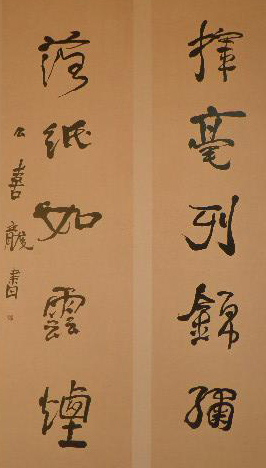 揮毫列錦繡
落紙如雲煙
公喜書